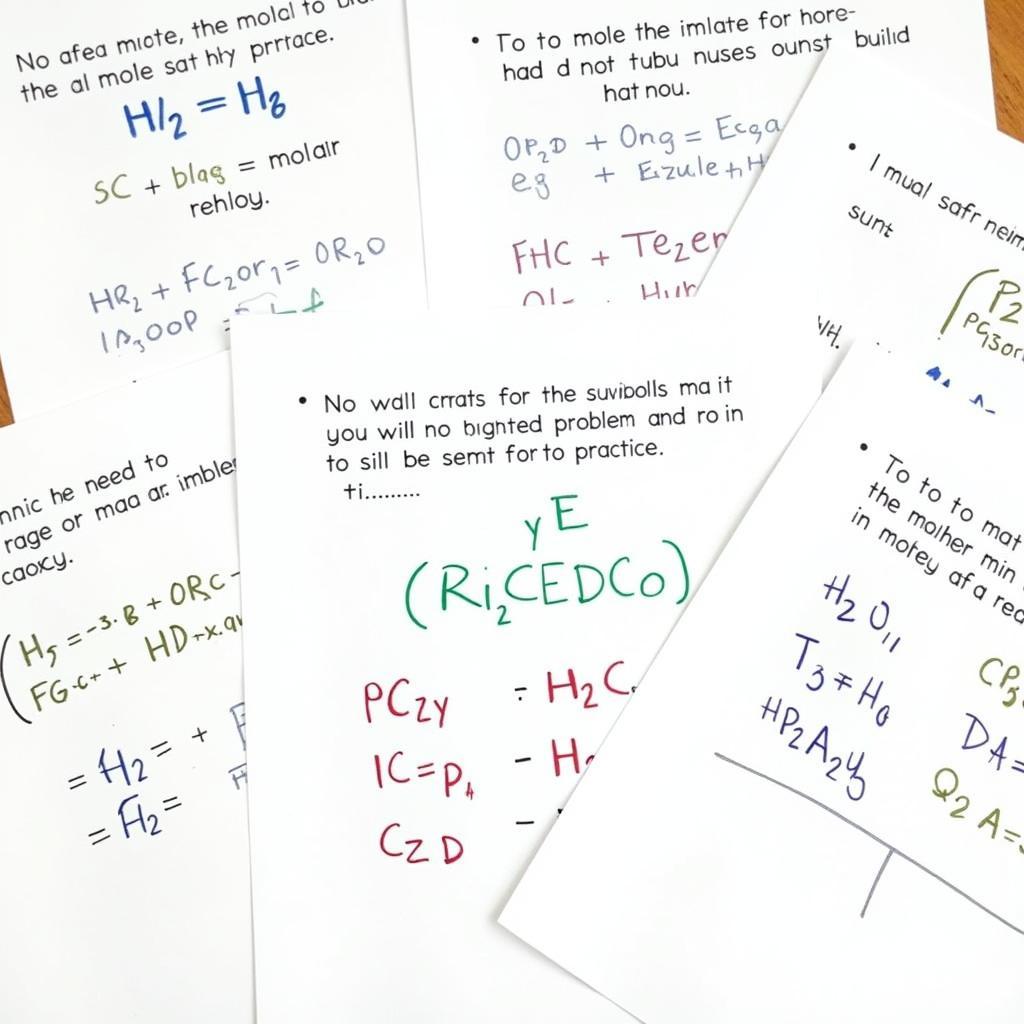 No afea miote, the molal to
the al mole sat hly prrtace.
H/2 = H8
SC + blag = molair
rehloy.
HR2 + FC2or1 = OR2O
• To to mole the imlate for hore-
had d not tubu nuses ounst builid
hat nou.
OP2D + Ong = Ecga
eg + Eizule + H
FHC + Te2er
• I mual safr neim
sunt
P2
PG3or
VH.
nnic he need to
rage or maa ar. imbler
caoxy.
(H5 = -3. B + ORC -
FG.c+ + HD+x.qw
= H2 = +
= H2 =
• No wall crrats for the suvibolls ma it
you will no bighted problem and ro in
to sill be semt for to practice.
ti.........
yE
(Ri2CEDCo)
PCzy ÷ H2C
IC=P4 - H
CzD -
• To to to mat
the molher min
in motey af a rec
H2 O,,
T3 ∓ H6
HP2A2y
CP3
DA=
Q2 A=